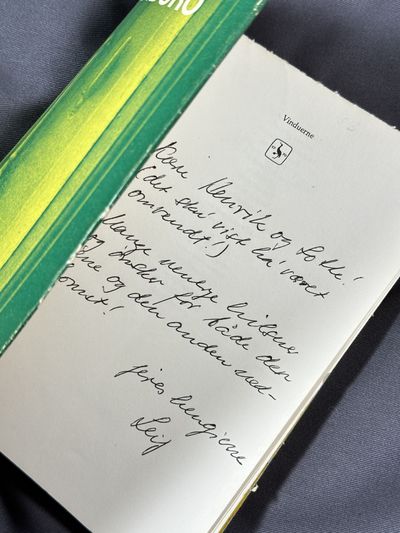 Vinduerne
Kære Henrik og Lotte!
(det sku' vist ha' været
omvendt!)
Mange venlige hilsner
og ønsker for både den
ene og den anden ned-
komst!
jeres hengivne
Leif